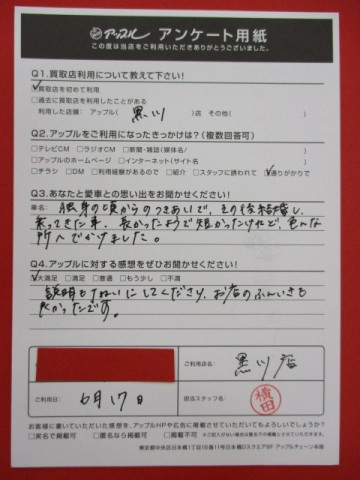 アップル アンケート用紙
この度は当店をご利用いただきありがとうございました。
Q1.買取店利用について教えて下さい!
☑買取店を初めて利用
□過去に買取店を利用したことがある
利用した店舗: アップル( 黒川 )店 その他( )
Q2.アップルをご利用になったきっかけは?(複数回答可)
□テレビCM □ラジオCM □新聞・雑誌(媒体名/ )
□アップルのホームページ □インターネット(サイト名 )
□チラシ □DM □利用経験があるので □紹介 □スタッフに誘われて ☑通りがかりで
Q3.あなたと愛車との思い出をお聞かせください!
車名: 独身の頃からのつきあいで、その後結婚し、
乗ってきた車、長かったようで短かったけれど、色んな
所へでかけました。
Q4.アップルに対する感想をぜひお聞かせください!
☑大満足 □満足 □普通 □もう少し □不満
説明もていねいにしてくださり、お店のふんいきも
よかったです。
ご利用店名: 黒川店
ご利用日: 6月17日
担当スタッフ名: 横田
お客様に書いていただいた感想を、アップルHPや広告に掲載させていただいてもよろしいでしょうか?
□実名で掲載可 □匿名なら掲載可 □掲載不可 ※ご記入がない場合は匿名での掲載とさせていただきます。
東京都中央区日本橋1丁目19番1号日本橋ダイヤビル9F アップルチェーン本部